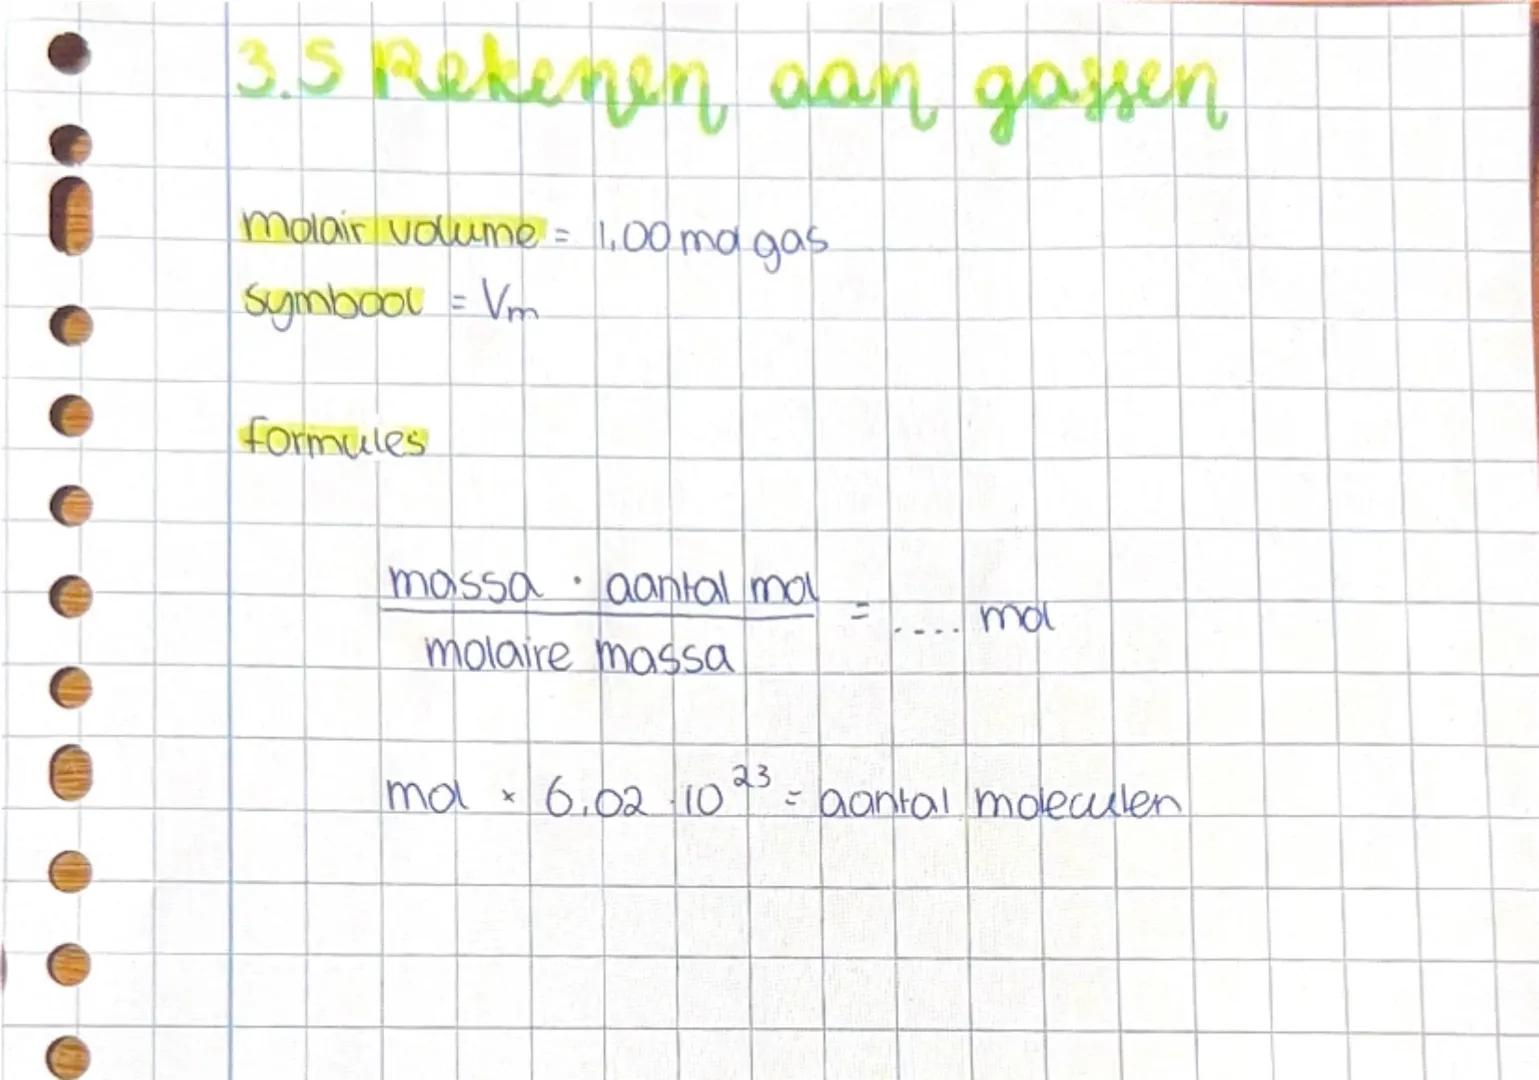 3.5 Rekenen aan gassen
molair volume = 1,00 mol gas
symbool = Vm
formules
massa · aantal mol
= ..... mol
molaire massa
mol × 6,02 · 10²³ = aantal moleculen